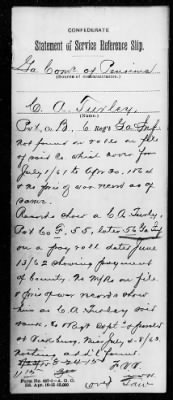 CONFEDERATE
Statement of Service Reference Slip.
Ga Com'r of Pensions
(Source of communication.)
C. A. Turley
(Name.)
Pvt, Co. B, 6 Reg't Ga. Inf.
Not found on rolls on file
of said Co which were for
July 1/61 to Apr 30, 186
& no pris of war record as of
same.
Records show a C A Turley,
Pvt Co G, 55, later 56 Ga Inf
on a pay roll dated June
13/62 showing payment
of bounty. No m/Rs on file
& pris of war records show
him as C. A. Turley said
rank, Co & Reg't Capt'd & paroled
at Vicksburg, Miss July 4-8/63.
Nothing add'l found.